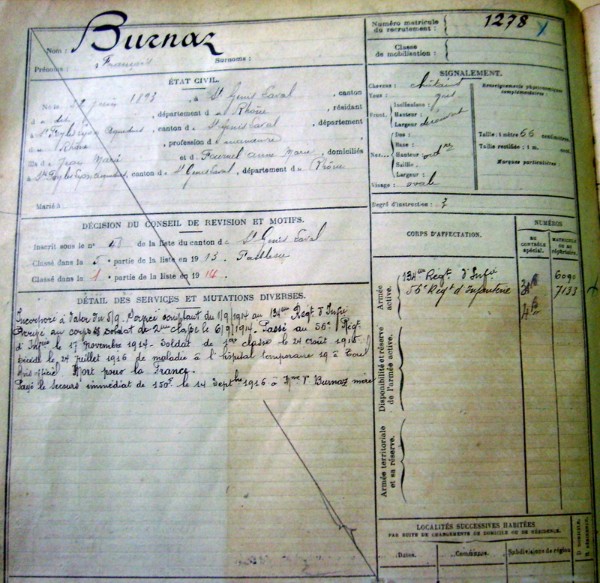 Nom : Burnaz
Prénoms : François Surnoms :
Numéro matricule du recrutement : 1278
Classe de mobilisation :
ÉTAT CIVIL.
Né le 2 juin 1893, à St Genis Laval, canton
du dit, département du Rhône, résidant
à canton de St Genis Laval, département
du Rhône, profession de manœuvre
fils de Jean Marie et de Anne Marie, domiciliés
à canton de St Genis Laval, département du Rhône
Marié à
SIGNALEMENT.
Cheveux : châtain
Yeux : gris
Front. Inclinaison :
Hauteur :
Largeur :
Nez. Dos :
Base :
Hauteur
Saillie.
Largeur :
Visage : ovale
Renseignements physionomiques complémentaires :
Taille : 1 mètre 66 centimètres.
Taille rectifiée : 1 m.
Marques particulières
Degré d'instruction : 3
DÉCISION DU CONSEIL DE REVISION ET MOTIFS.
Inscrit sous le n° de la liste du canton de St Genis Laval
Classé dans la 5 e partie de la liste en 1913.
Classé dans la 1 e partie de la liste en 1914.
DÉTAIL DES SERVICES ET MUTATIONS DIVERSES.
Incorporé à dater du 5/9. comptant du 1/9/1914 au 134ème Régt d'Infie
Arrivé au corps et soldat de 2ème classe le 6/9/1914. Passé au 56e Régt
d'Infie le 17 novembre 1914. Soldat de 1ère classe le 24 août 1915.
Décédé le 24 juillet 1916 de maladie à l'hôpital temporaire 19 à Toul
Avis officiel Mort pour la France.
Payé le secours immédiat de 150f. le 14 Septbre 1916 à Mme Vve Burnaz mère
CORPS D'AFFECTATION.
NUMÉROS
AU CONTRÔLE SPÉCIAL.
MATRICULE OU AU RÉPERTOIRE.
Armée active.
134ème Régt d'Infie 6090
56e Régt d'Infanterie 7133
Disponibilité et réserve de l'armée active.
Armée territoriale et sa réserve.
LOCALITÉS SUCCESSIVES HABITÉES
PAR SUITE DE CHANGEMENTS DE DOMICILE OU DE RÉSIDENCE.
Dates. Communes. Subdivisions de région